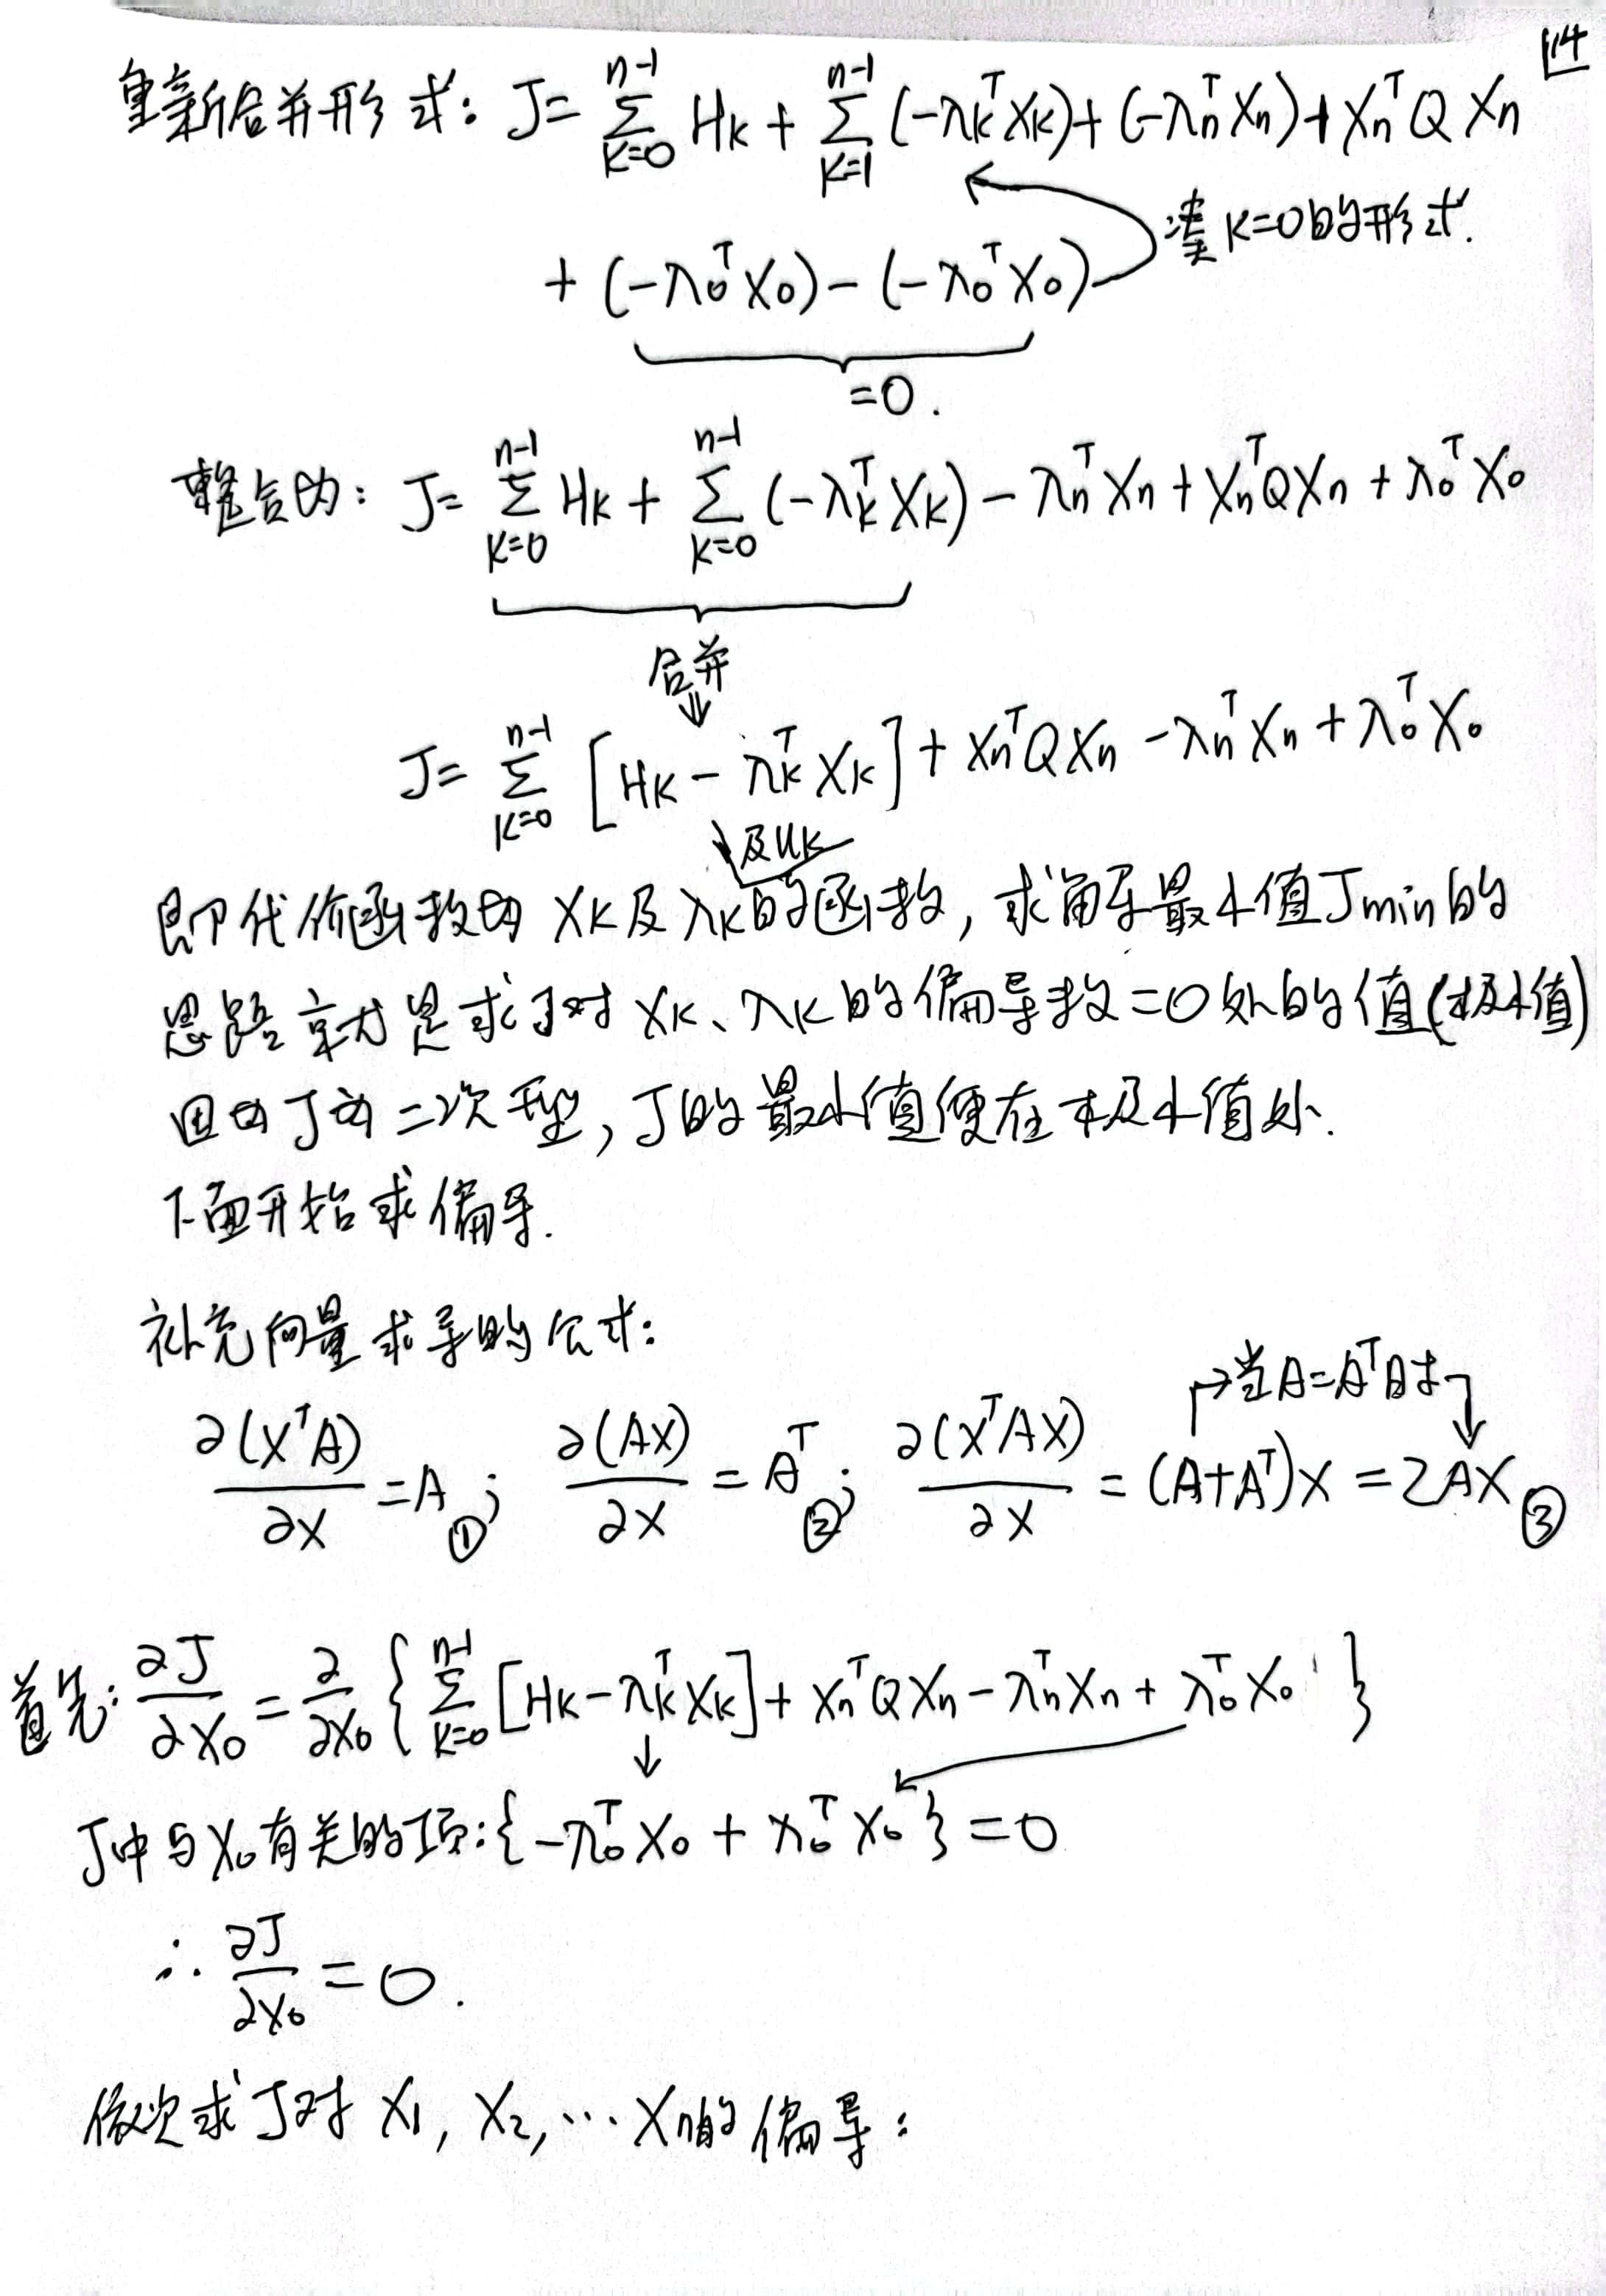 14
重新合并形式: J = \sum_{k=0}^{n-1} H_k + \sum_{k=1}^{n-1} (-λ_k^T X_k) + (-λ_n^T X_n) + X_n^T Q X_n
凑 k=0 的形式.
+ (-λ_0^T X_0) - (-λ_0^T X_0)
=0.
整合为: J = \sum_{k=0}^{n-1} H_k + \sum_{k=0}^{n-1} (-λ_k^T X_k) - λ_n^T X_n + X_n^T Q X_n + λ_0^T X_0
合并
J = \sum_{k=0}^{n-1} [H_k - λ_k^T X_k] + X_n^T Q X_n - λ_n^T X_n + λ_0^T X_0
及 U_k
即代价函数为 X_k 及 λ_k 的函数, 求解最小值 J_{min} 的
思路就是求 J 对 X_k、λ_k 的偏导数=0处的值(极小值)
因为 J 为二次型, J 的最小值便在极小值处.
下面开始求偏导.
补充向量求导的公式:
→当 A=A^T 时
\frac{∂(X^T A)}{∂X} = A ①; \frac{∂(AX)}{∂X} = A^T ②; \frac{∂(X^T A X)}{∂X} = (A+A^T)X = 2AX ③
首先: \frac{∂J}{∂X_0} = \frac{∂}{∂X_0} { \sum_{k=0}^{n-1} [H_k - λ_k^T X_k] + X_n^T Q X_n - λ_n^T X_n + λ_0^T X_0 }
J 中与 X_0 有关的项: {-λ_0^T X_0 + λ_0^T X_0} = 0
∴ \frac{∂J}{∂X_0} = 0.
依次求 J 对 X_1, X_2, ⋯ X_n 的偏导: